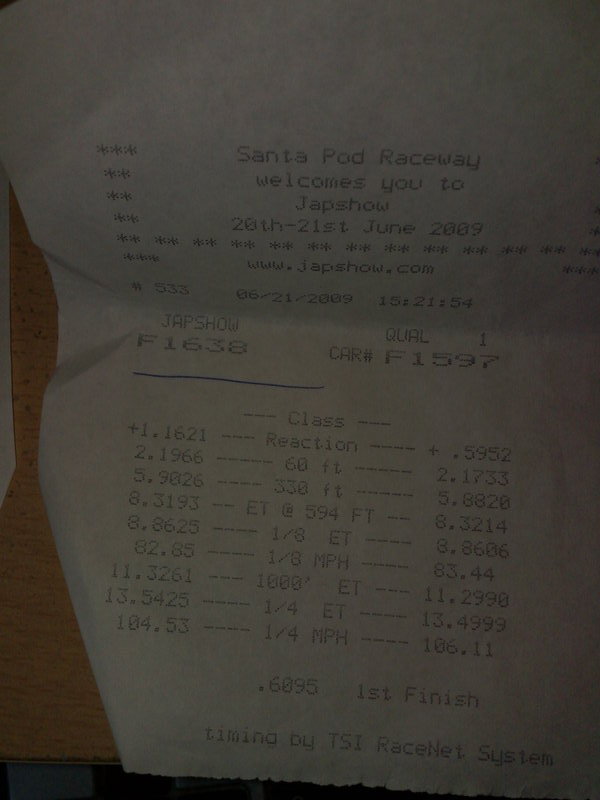 *** Santa Pod Raceway
** welcomes you to
** Japshow
** 20th-21st June 2009
** ** ** ** ** ** ** ** ** ** ** ** **
*** www.japshow.com ***
# 533 06/21/2009 15:21:54
JAPSHOW QUAL 1
F1638 CAR# F1597
--- Class ---
+1.1621 ---- Reaction ---- + .5952
2.1966 ----- 60 ft ----- 2.1733
5.9026 ---- 330 ft ---- 5.8820
8.3193 -- ET @ 594 FT -- 8.3214
8.8625 ---- 1/8 ET ---- 8.8606
82.85 ---- 1/8 MPH ---- 83.44
11.3261 --- 1000' ET ---- 11.2990
13.5425 ---- 1/4 ET ---- 13.4999
104.53 ---- 1/4 MPH ---- 106.11
.6095 1st Finish
timing by TSI RaceNet System